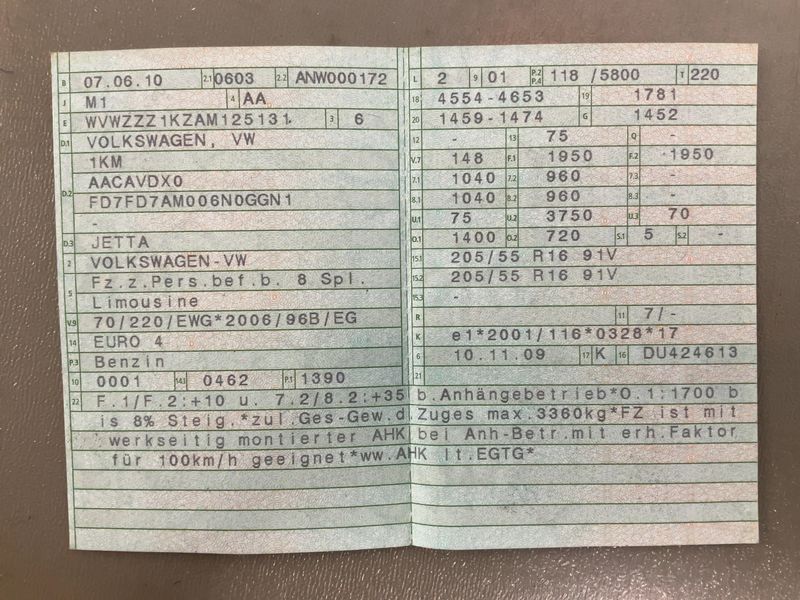 B 07.06.10 2.1 0603 2.2 ANW000172
J M1 4 AA
E WVWZZZ1KZAM125131 3 6
D.1 VOLKSWAGEN, VW
1KM
D.2 AACAVDX0
FD7FD7AM006N0GGN1
-
D.3 JETTA
2 VOLKSWAGEN-VW
5 Fz.z.Pers.bef.b. 8 Spl.
Limousine
V.9 70/220/EWG*2006/96B/EG
14 EURO 4
P.3 Benzin
10 0001 14.1 0462 P.1 1390
L 2 9 01 P.2 P.4 118 /5800 T 220
18 4554-4653 19 1781
20 1459-1474 G 1452
12 - 13 75 Q -
V.7 148 F.1 1950 F.2 1950
7.1 1040 7.2 960 7.3 -
8.1 1040 8.2 960 8.3 -
U.1 75 U.2 3750 U.3 70
O.1 1400 O.2 720 S.1 5 S.2 -
15.1 205/55 R16 91V
15.2 205/55 R16 91V
15.3 -
R 11 7/-
K e1*2001/116*0328*17
6 10.11.09 17 K 16 DU424613
21
22 F.1/F.2:+10 u. 7.2/8.2:+35 b.Anhängebetrieb*O.1:1700 b
is 8% Steig.*zul.Ges-Gew.d.Zuges max.3360kg*FZ ist mit
werkseitig montierter AHK bei Anh-Betr.mit erh.Faktor
für 100km/h geeignet*ww.AHK lt.EGTG*